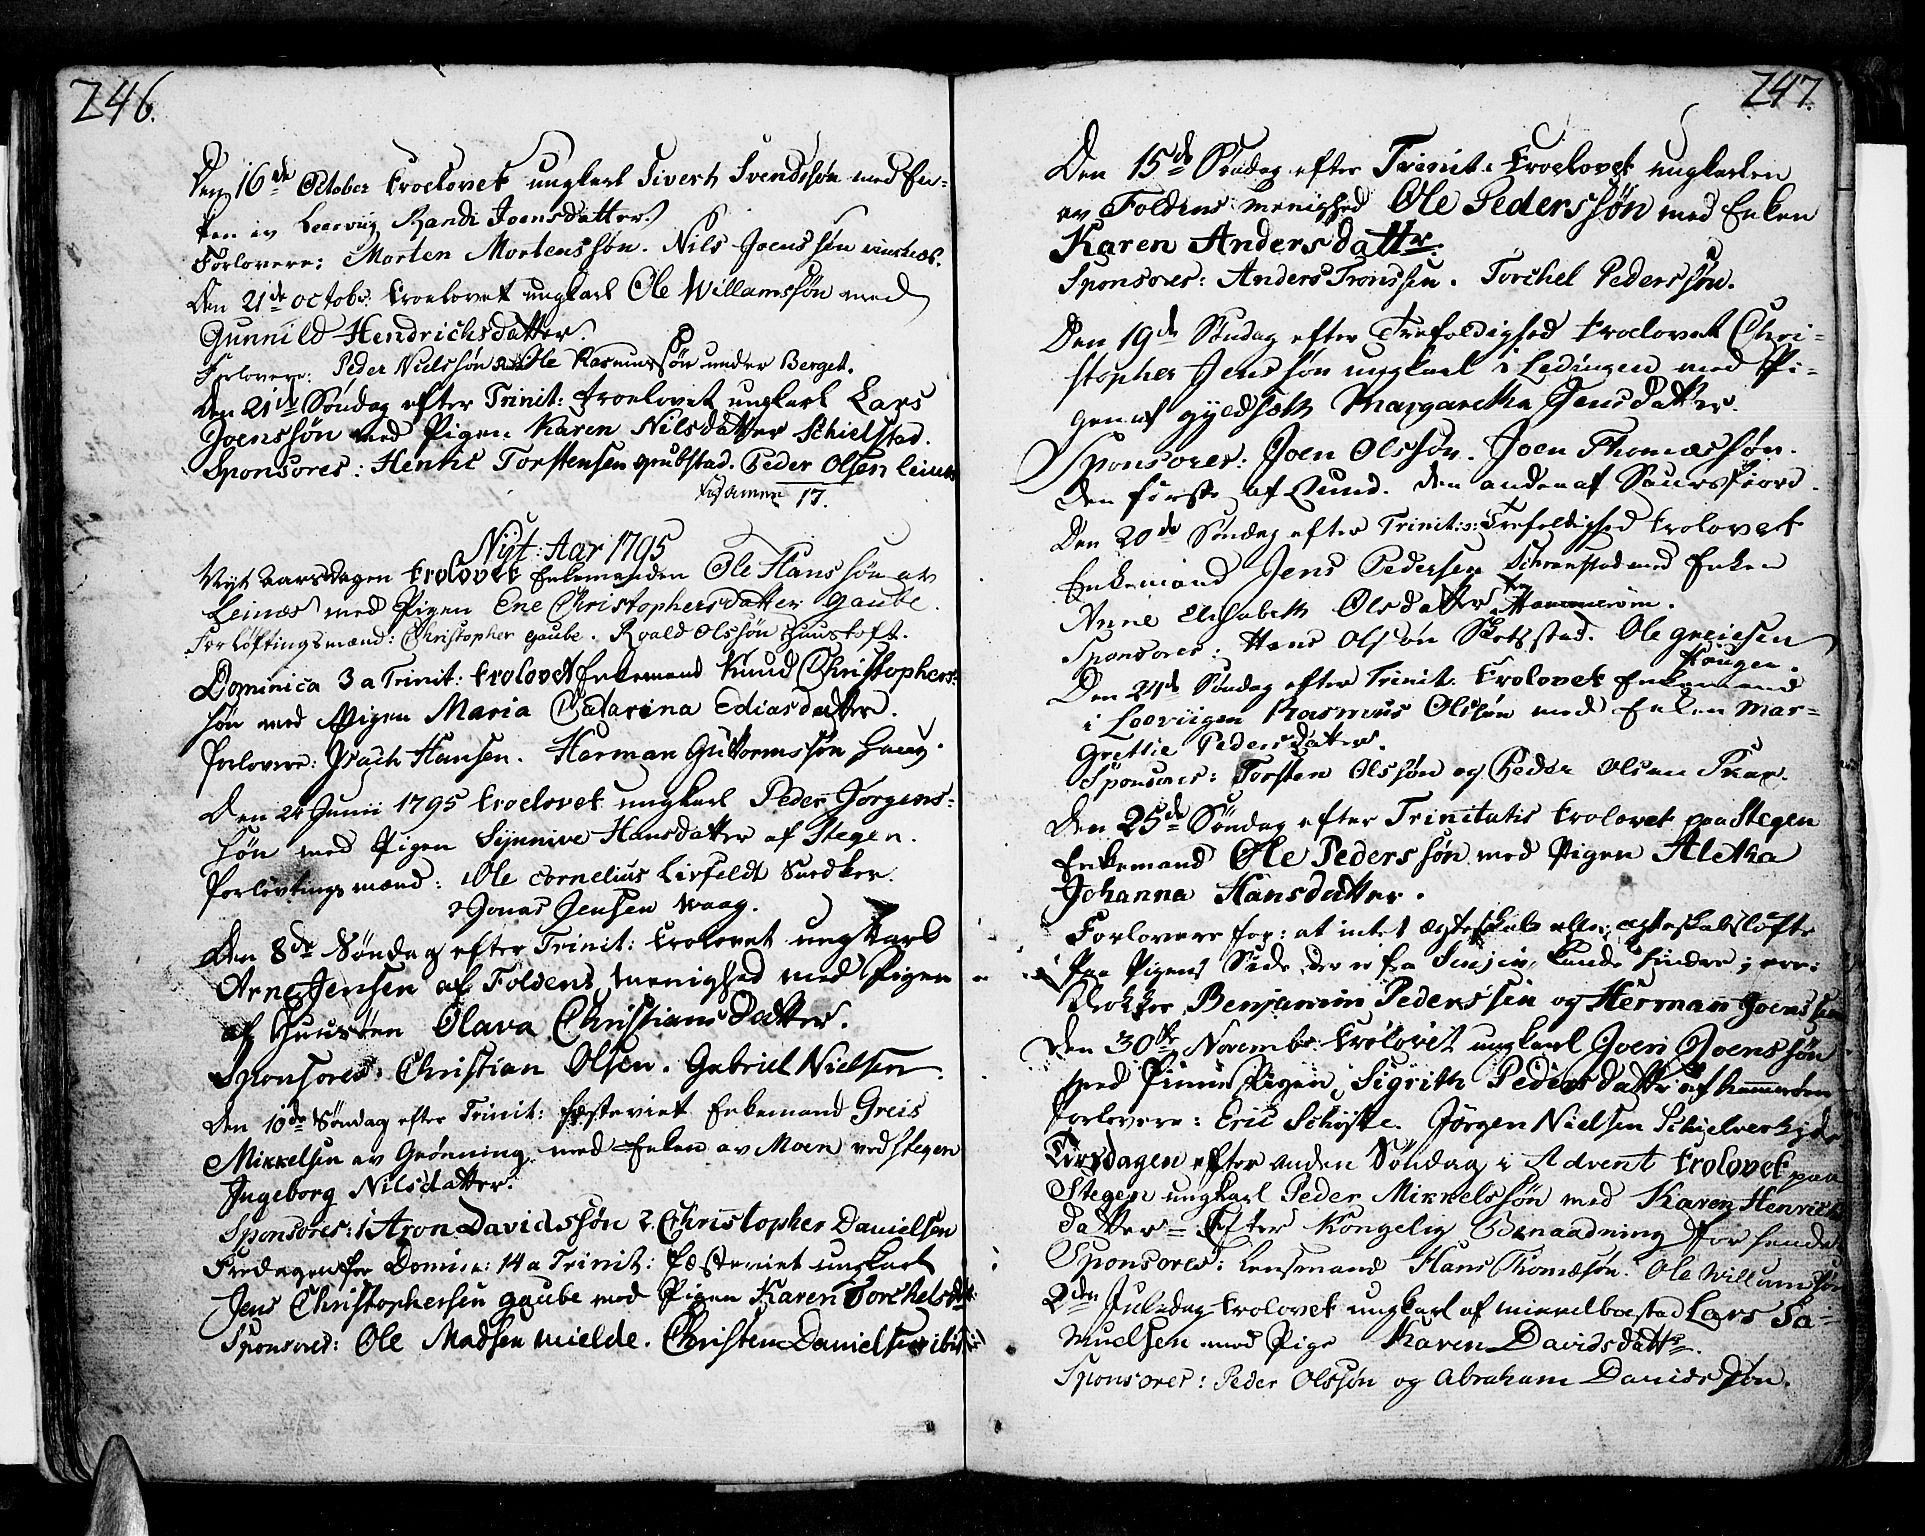 246.
Den 16de October troelovet ungkarl Sivert Svendssøn med En-
ken i Leerviig Randi Joensdatter.
Forlovere: Morten Mortenssøn. Nils Joenssøn
Den 21de octobr. troelovet ungkarl Ole Willamssøn med
Gunnild Hendrichsdatter.
Forlovere: Peder Nielssøn Ole Rasmussøn under Berget.
Den 21de Søndag efter Trinit: troelovet ungkarl Lars
Joenssøn med Pigen Karen Nilsdatter Schielstad.
Sponsores: Henric Torstensen grubstad. Peder Olsen leines
tilsamen 17.
Nyt: Aar 1795
Nyt aarsdagen trolovet Enkemanden Ole Hanssøn av
Leines med Pigen Ene Christophersdatter gaube.
Forløftingsmænd: Christopher gaube. Roald Olssøn Huustoft.
Dominica 3 a Trinit: trolovet Enkemand Knud Christophers-
søn med Pigen Maria Catarina Ediasdatter.
forlovere: Isach Hansen. Herman Guttormssøn
Den 24 Junii 1795 troelovet ungkarl Peder Jørgens-
søn med Pigen Synnive Hansdatter af Stegen.
forløvtings mænd: 1 Ole Cornelius Lirfeldt Snedker.
2 Jonas Jensen Vaag.
Den 8de Søndag efter Trinit: trolovet ungkarl
Arne Jensen af Foldens menighed med Pigen
af Huusøen Olava Christians Datter.
Sponsores: Christian Olsen. Gabriel Nielsen.
Den 10de Søndag efter Trinit: fæsteviet Enkemand Greis
Mikkelsen av Grønning med Enken av Moen ved Stegen
Ingeborg Nilsdatter.
Sponsores: 1 Aron Davidssøn 2. Christopher Danielsen
Fredagen for Domin: 14 a Trinit: fæsteviet ungkarl
Jens Christophersen gaube med Pigen Karen Torchelsdatt
Sponsores: Ole Madsen mielde. Christen Danielsen
247.
Den 15de Søndag efter Trinit: troelovet ungkarlen
av Foldens menighed Ole Pederssøn med Enken
Karen Andersdattr.
Sponsores: Anders Tronssen. Torchel Pederssøn.
Den 19de Søndag efter Trefoldighed troelovet Chri-
stopher Jenssøn ungkarl i Ledingen med Pi-
gen af gyldsæth Margaretha Jensdatter.
Sponsores: Joen Olssøn. Joen Thomæssøn.
den første af Lund. den anden af Saursfiord.
Den 20de Søndag efter Trinit: s: Trefoldighed trolovet
Enkemand Jens Pedersen Schranstad med Enken
Anne Elisabeth Olsdatter Hammerøen.
Sponsores: Hans Olssøn Skotsstad. Ole greisen
Haugen.
Den 24de Søndag efter Trinit. trolovet Enkemand
i Leeviigen Rasmus Olssøn med Enken Mar-
grettie Pedersdatter.
Sponsores: Torsten Olssøn og Peder Olsen
Den 25de Søndag efter Trinitatis trolovet paa Stegen
Enkemand Ole Pederssøn med Pigen Aletha
Johanna Hansdatter.
Forlovere for: at intet ægteskab eller egteskabsløfte
Paa Pigens Side, der er fra Senjen, kunde hindre; ere:
Klokker Benjamin Pederssen og Herman Joenssen
Den 30te Novembr trolovet ungkarl Joen Joenssøn
med Pigen Sigrith Pedersdatter af hammerøen
forlovere: Eric Schøjtte. Jørgen Nielsen
Tirsdagen efter anden Søndag i Advent trolovet paa
Stegen ungkarl Peder Mikkelssøn med Karen Henrichs
datter = Efter Kongelig Benaadning for hende
Sponsores: Lensmand Hans Thomæsøn. Ole Willumsøn
2den Juledag trolovet ungkarl af mikkelboestad Lars Sa-
muelsen med Pige Karen Davidsdattr.
Sponsores: Peder Olssøn og Abraham Danielssøn.